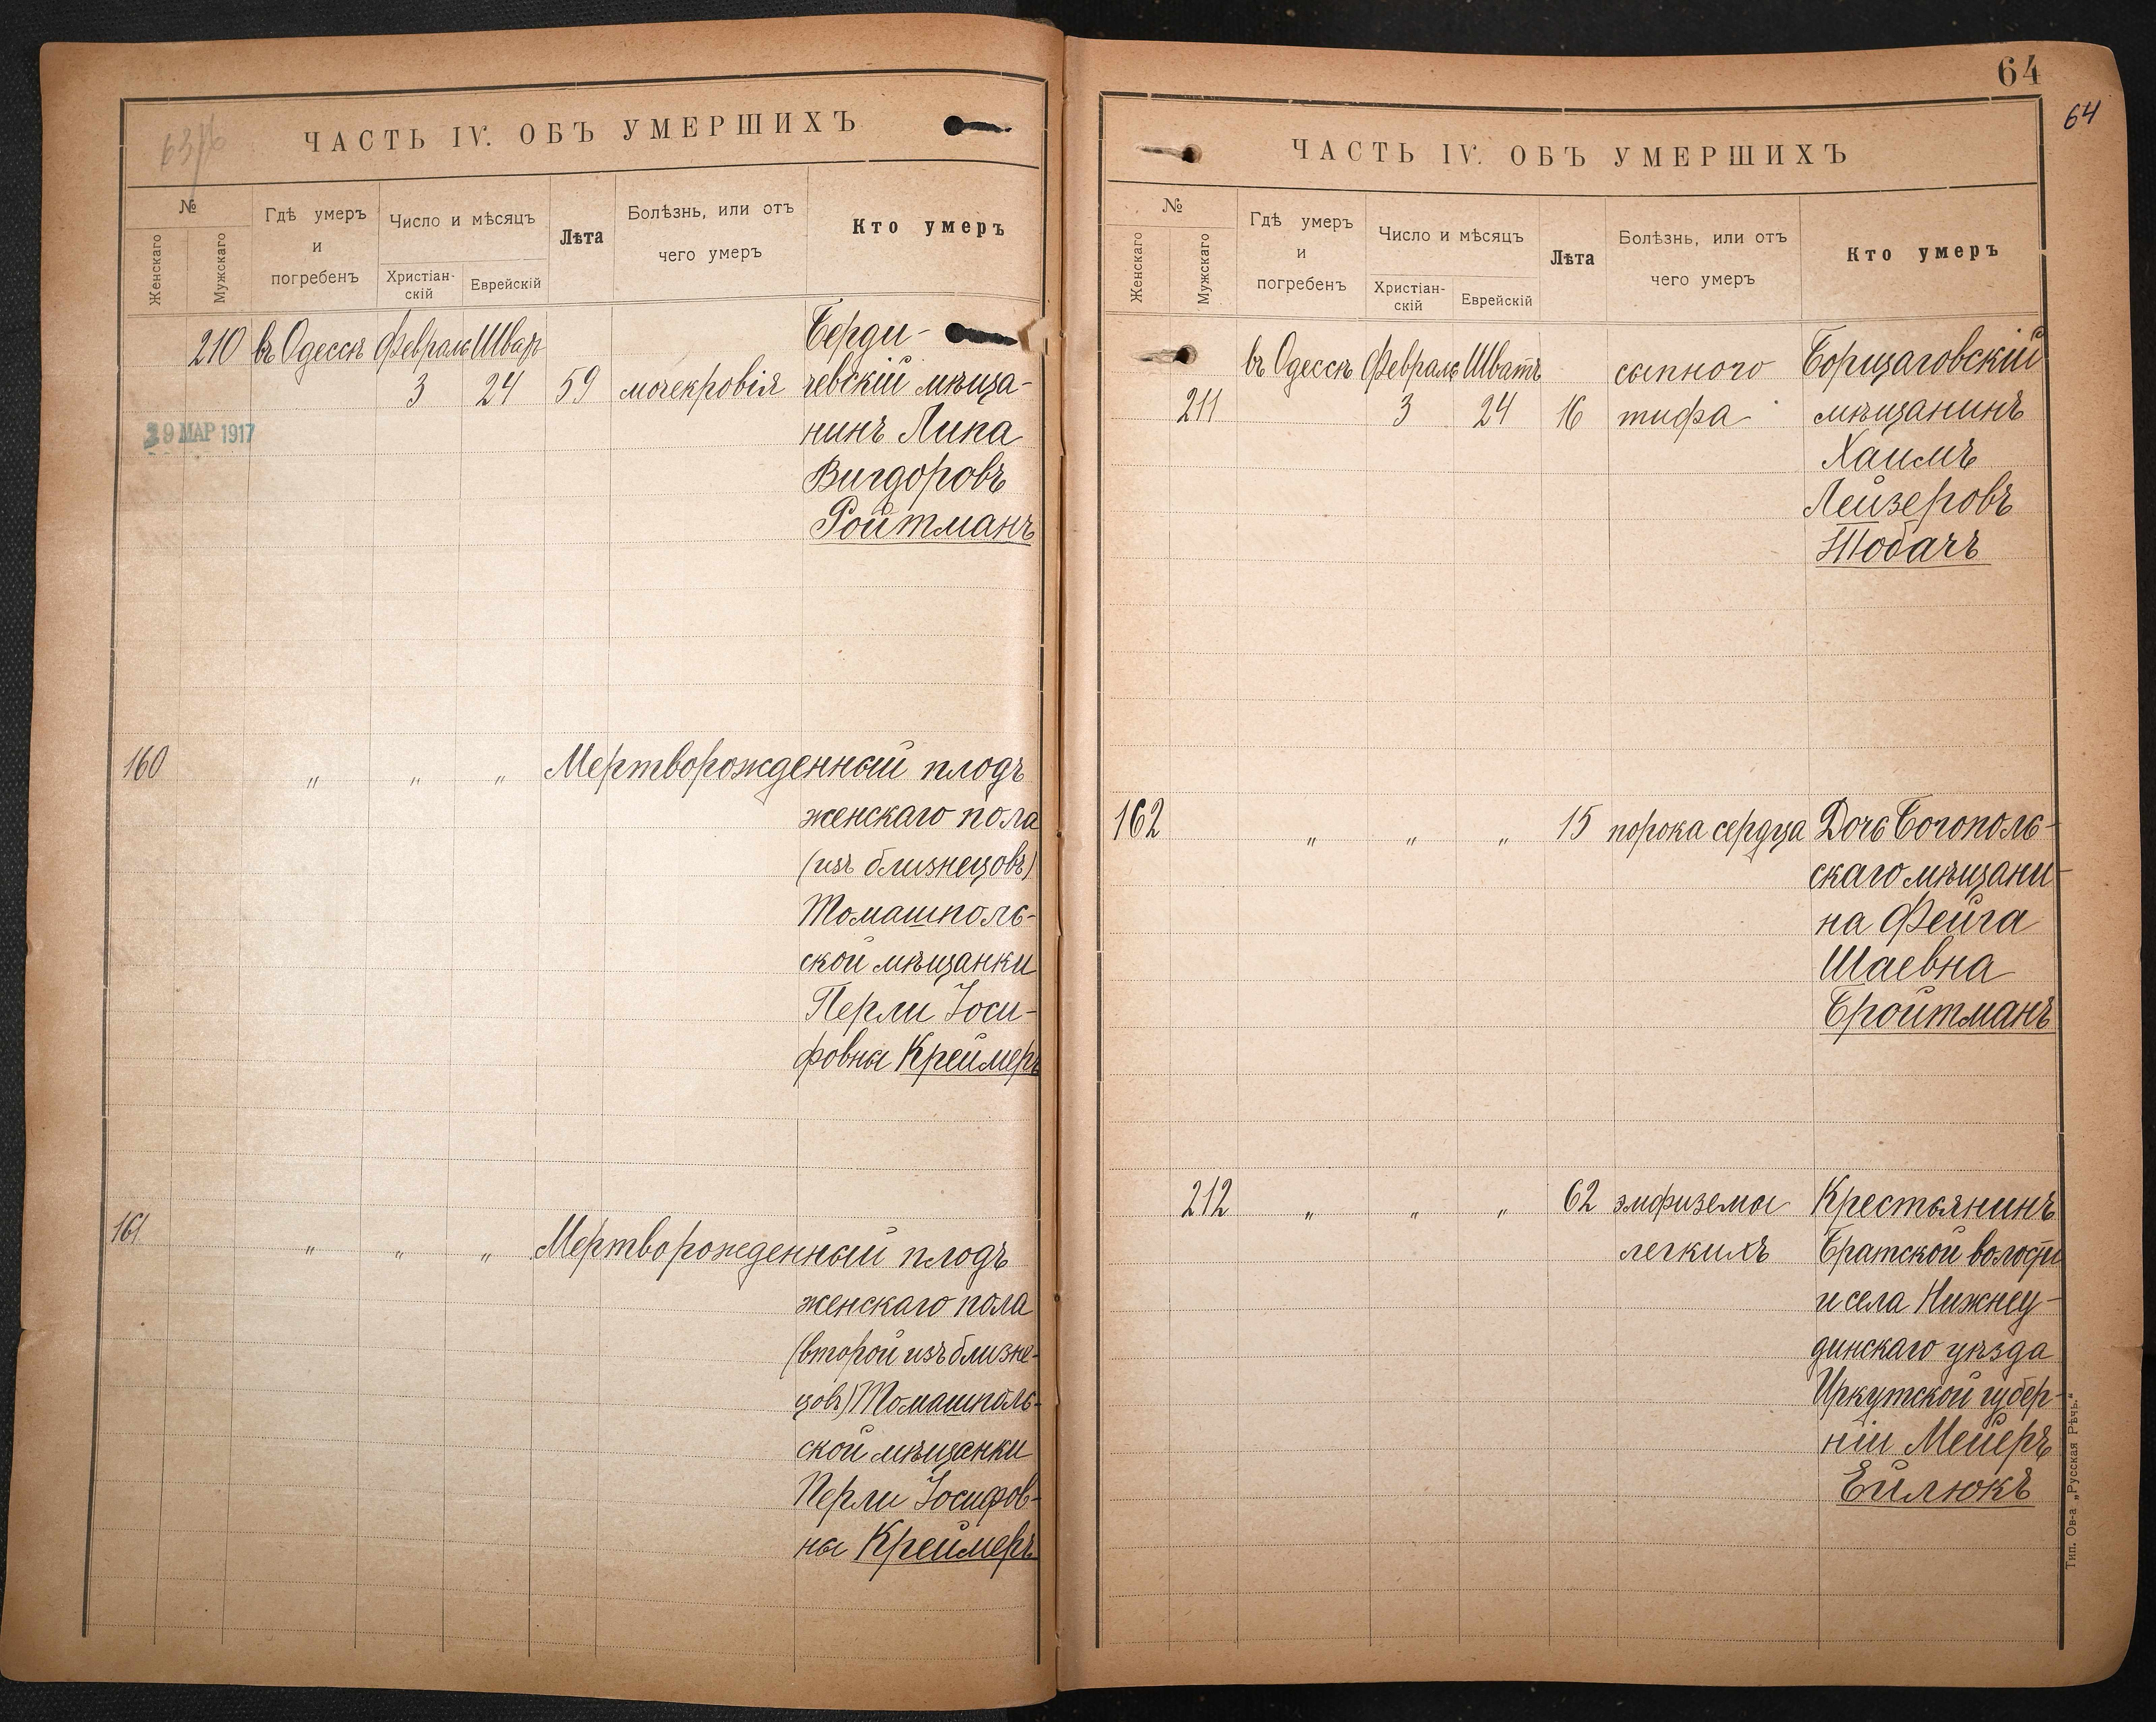 ЧАСТЬ IV. ОБЪ УМЕРШИХЪ
№
Женскаго
Мужскаго
Гдѣ умеръ
и
погребенъ
Число и мѣсяцъ
Христіан-
скій
Еврейскій
Лѣта
Болѣзнь, или отъ
чего умеръ
Кто умеръ
210 въ Одессѣ Февраль Шват Берди-
3 24 59 мочекровія чевскій мѣща-
29 МАР 1917
нинъ Липа
Вигдоровъ
Ройтманъ
160 " " " Мертворожденный плодъ
женскаго пола
(изъ близнецовъ)
Томашполь-
ской мѣщанки
Перли Іоси-
фовны Креймеръ
161 " " " Мертворожденный плодъ
женскаго пола
(второй изъ близне-
цовъ) Томашполь-
ской мѣщанки
Перли Іосифов-
ны Креймеръ
64
64
ЧАСТЬ IV. ОБЪ УМЕРШИХЪ
№
Женскаго
Мужскаго
Гдѣ умеръ
и
погребенъ
Число и мѣсяцъ
Христіан-
скій
Еврейскій
Лѣта
Болѣзнь, или отъ
чего умеръ
Кто умеръ
въ Одессѣ Февраль Шватъ сыпного Борщаговскій
211 3 24 16 тифа мѣщанинъ
Хаимъ
Лейзеровъ
Тобачъ
162 " " " 15 порока сердца Дочь Богополь-
скаго мѣщани-
на Фейга
Шаевна
Бройтманъ
212 " " " 62 эмфиземы Крестьянинъ
легкихъ Братской волости
и села Нижнеу-
динскаго уѣзда
Иркутской губер-
ніи Мейеръ
Ейлюкъ
Тип. Ов-а „Русская Рѣчь.“